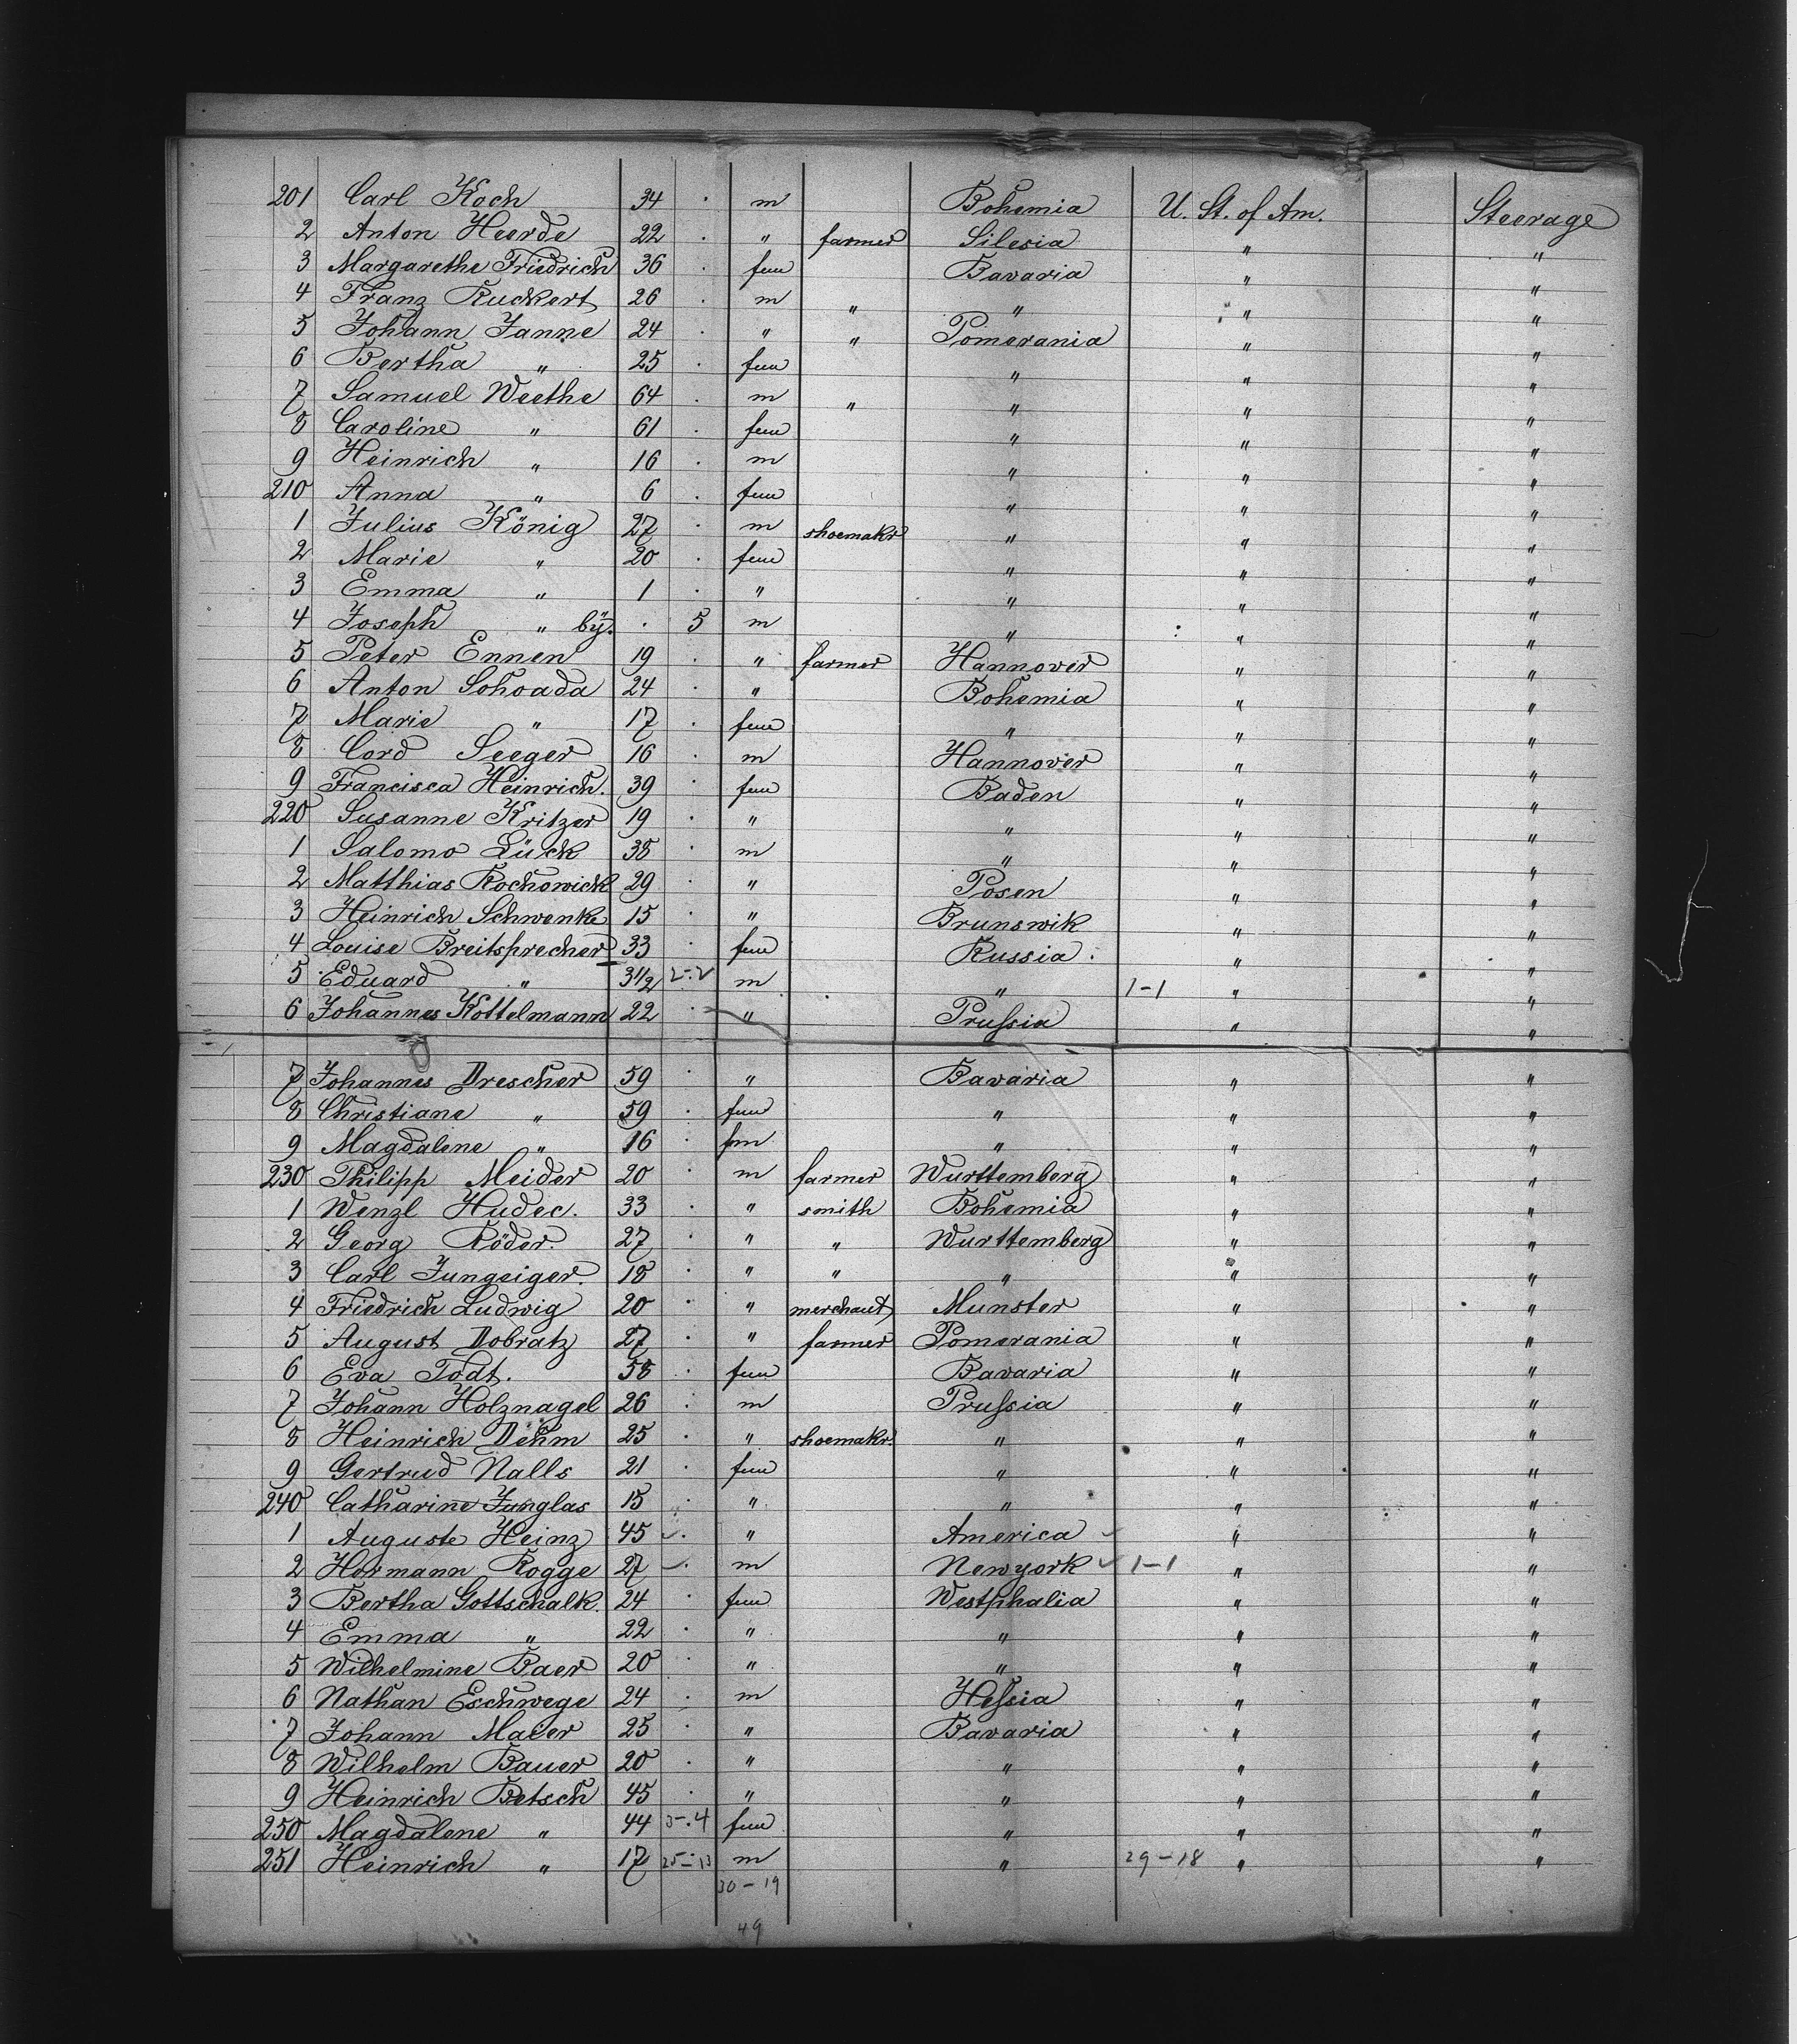 201 Carl Koch 34 . m Bohemia U. St. of Am. Steerage
2 Anton Heerde 22 . " farmer Silesia " "
3 Margarethe Friedrich 36 . fem Bavaria " "
4 Franz Ruckert 26 . m " " " "
5 Johann Janne 24 . " " Pomerania " "
6 Bertha " 25 . fem " " "
7 Samuel Weethe 64 . m " " " "
8 Caroline " 61 . fem " " "
9 Heinrich " 16 . m " " "
210 Anna " 6 . fem " " "
1 Julius König 27 . m shoemakr " " "
2 Marie " 20 . fem " " "
3 Emma " 1 . " " " "
4 Joseph " by. . 5 m " " "
5 Peter Ennen 19 . " farmer Hannover " "
6 Anton Schoada 24 . " Bohemia " "
7 Marie " 17 . fem " " "
8 Cord Seeger 16 . m Hannover " "
9 Francisca Heinrich. 39 . fem Baden " "
220 Susanne Kritzer 19 . " " " "
1 Salomo Lück 38 . m " " "
2 Matthias Rochowick 29 . " Posen " "
3 Heinrich Schwenke 15 . " Brunswik " "
4 Louise Breitsprecher 33 . fem Russia . " "
5 Eduard " 3 1/2 2-.2 m " 1-1 " "
6 Johannes Kottelmann 22 . " Prussia " "
7 Johannes Drescher 59 . " Bavaria " "
8 Christiane " 59 . fem " " "
9 Magdalene " 16 . fem " " "
230 Philipp Meider 20 . m farmer Wurttemberg " "
1 Wenzl Hudec. 33 . " smith Bohemia " "
2 Georg Röder. 27 . " " Wurttemberg " "
3 Carl Jungeiger. 18 . " " " " "
4 Friedrich Ludwig 20 . " merchant Munster " "
5 August Dobratz 27 . " farmer Pomerania " "
6 Eva Todt. 58 . fem Bavaria " "
7 Johann Holznagel 26 . m Prussia " "
8 Heinrich Dehm 25 . " shoemakr. " " "
9 Gertrud Nalls 21 . fem " " "
240 Catharine Junglas 15 . " " " "
1 Auguste Heinz 45 ✓. " America ✓ " "
2 Hermann Rogge 27 ✓. m Newyork ✓ 1-1 " "
3 Bertha Gottschalk. 24 . fem Westphalia " "
4 Emma " 22 . " " " "
5 Wilhelmine Baer 20 . " " " "
6 Nathan Eschwege 24 . m Hessia " "
7 Johann Maier 25 . " Bavaria " "
8 Wilhelm Bauer 20 . " " " "
9 Heinrich Betsch 45 . " " " "
250 Magdalene " 44 3-.4 fem " " "
251 Heinrich " 17 25-13 m " 29-18 " "
30-19
49